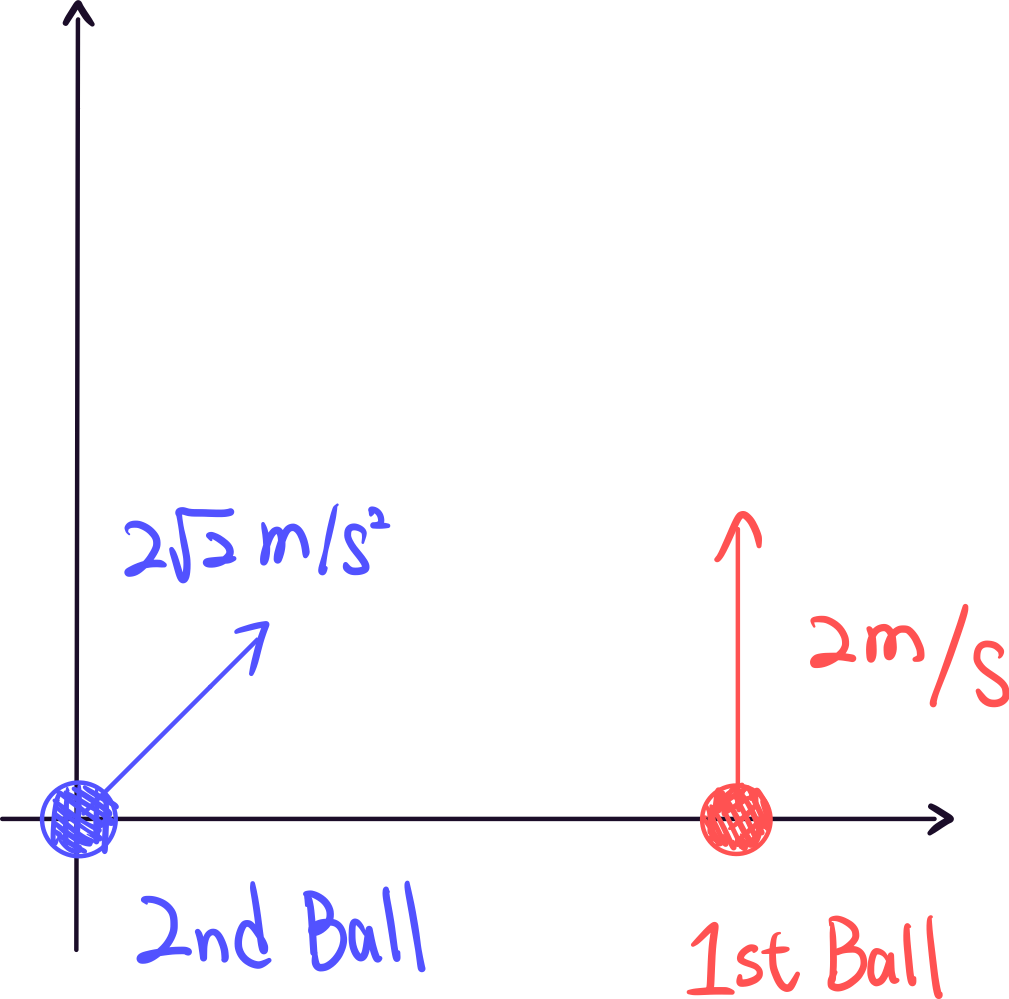 2√2 m/s²
2m/s
2nd Ball
1st Ball